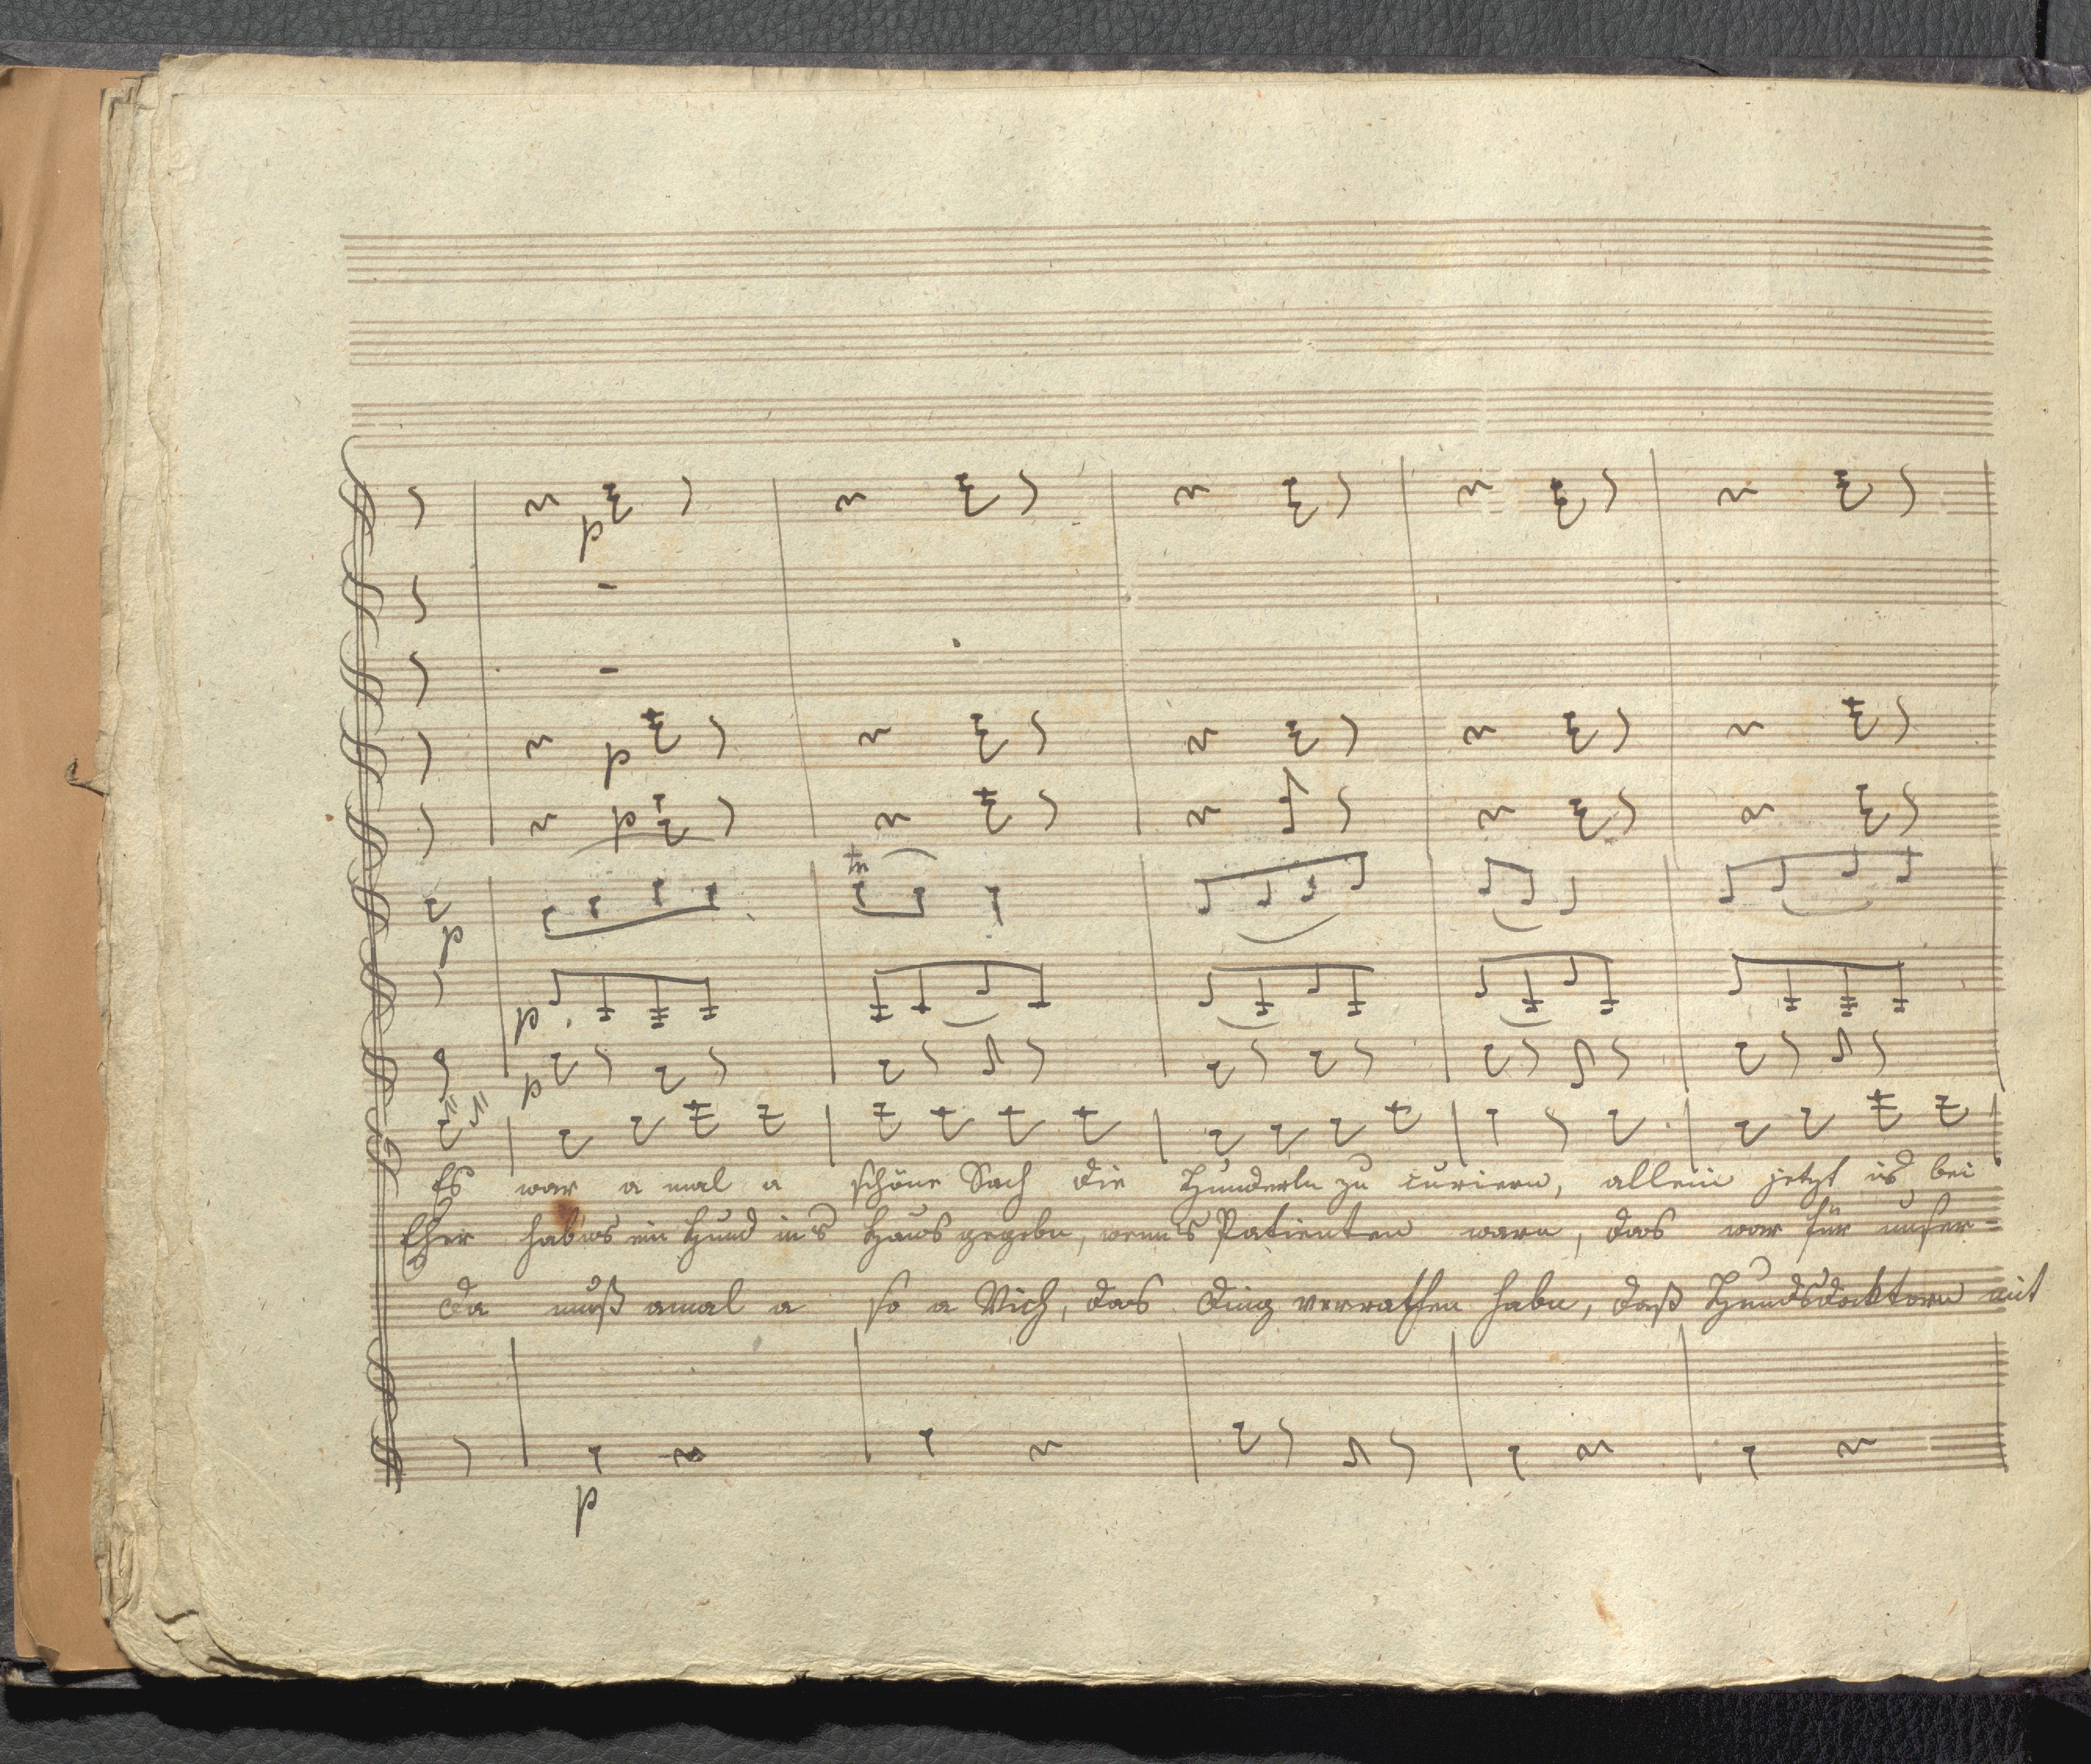 p
p
p
tr
p
p
p
Es war a mal a schöne Sach die Hunderln zu curiern, allein jetzt is bei
Eher habns ein Hund in's Haus gegebn, wenn's Patienten warn, das war für unser=
Da muß amal a so a Vich, das Ding verrathen habn, daß Hundsdoktorn mit
p